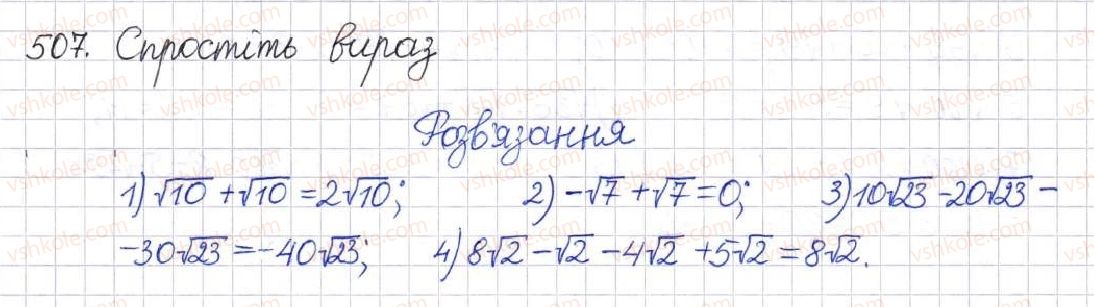 507. Спростіть вираз
Розв'язання
1) √10 + √10 = 2√10; 2) -√7 + √7 = 0; 3) 10√23 - 20√23 -
- 30√23 = -40√23; 4) 8√2 - √2 - 4√2 + 5√2 = 8√2.
vshkole.com